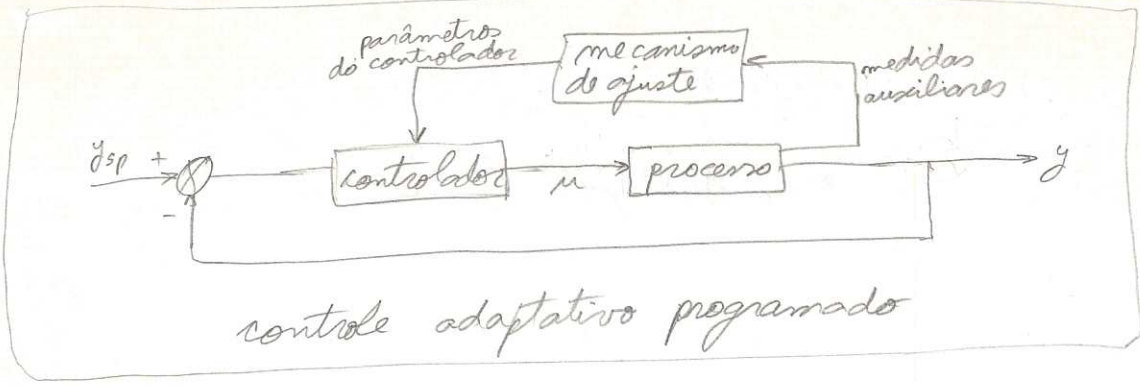 parâmetros
do controlador
mecanismo
de ajuste
medidas
auxiliares
ysp
+
-
controlador
u
processo
y
controle adaptativo programado